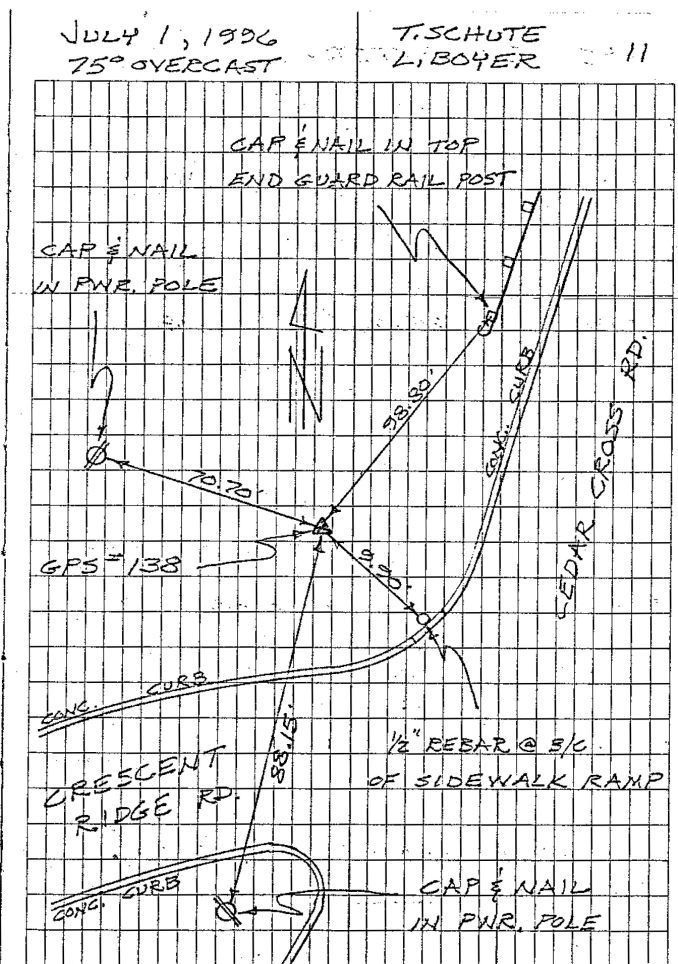 JULY 1, 1996
75° OVERCAST
T. SCHUTE
L. BOYER
11
CAP & NAIL IN TOP
END GUARD RAIL POST
CAP & NAIL
IN PWR. POLE
98.80'
CONC. CURB
CEDAR CROSS RD.
70.70'
GPS # 138
9.90'
CONC. CURB
88.15'
1/2" REBAR @ B/C
OF SIDEWALK RAMP
CRESCENT
RIDGE RD.
CONC. CURB
CAP & NAIL
IN PWR. POLE